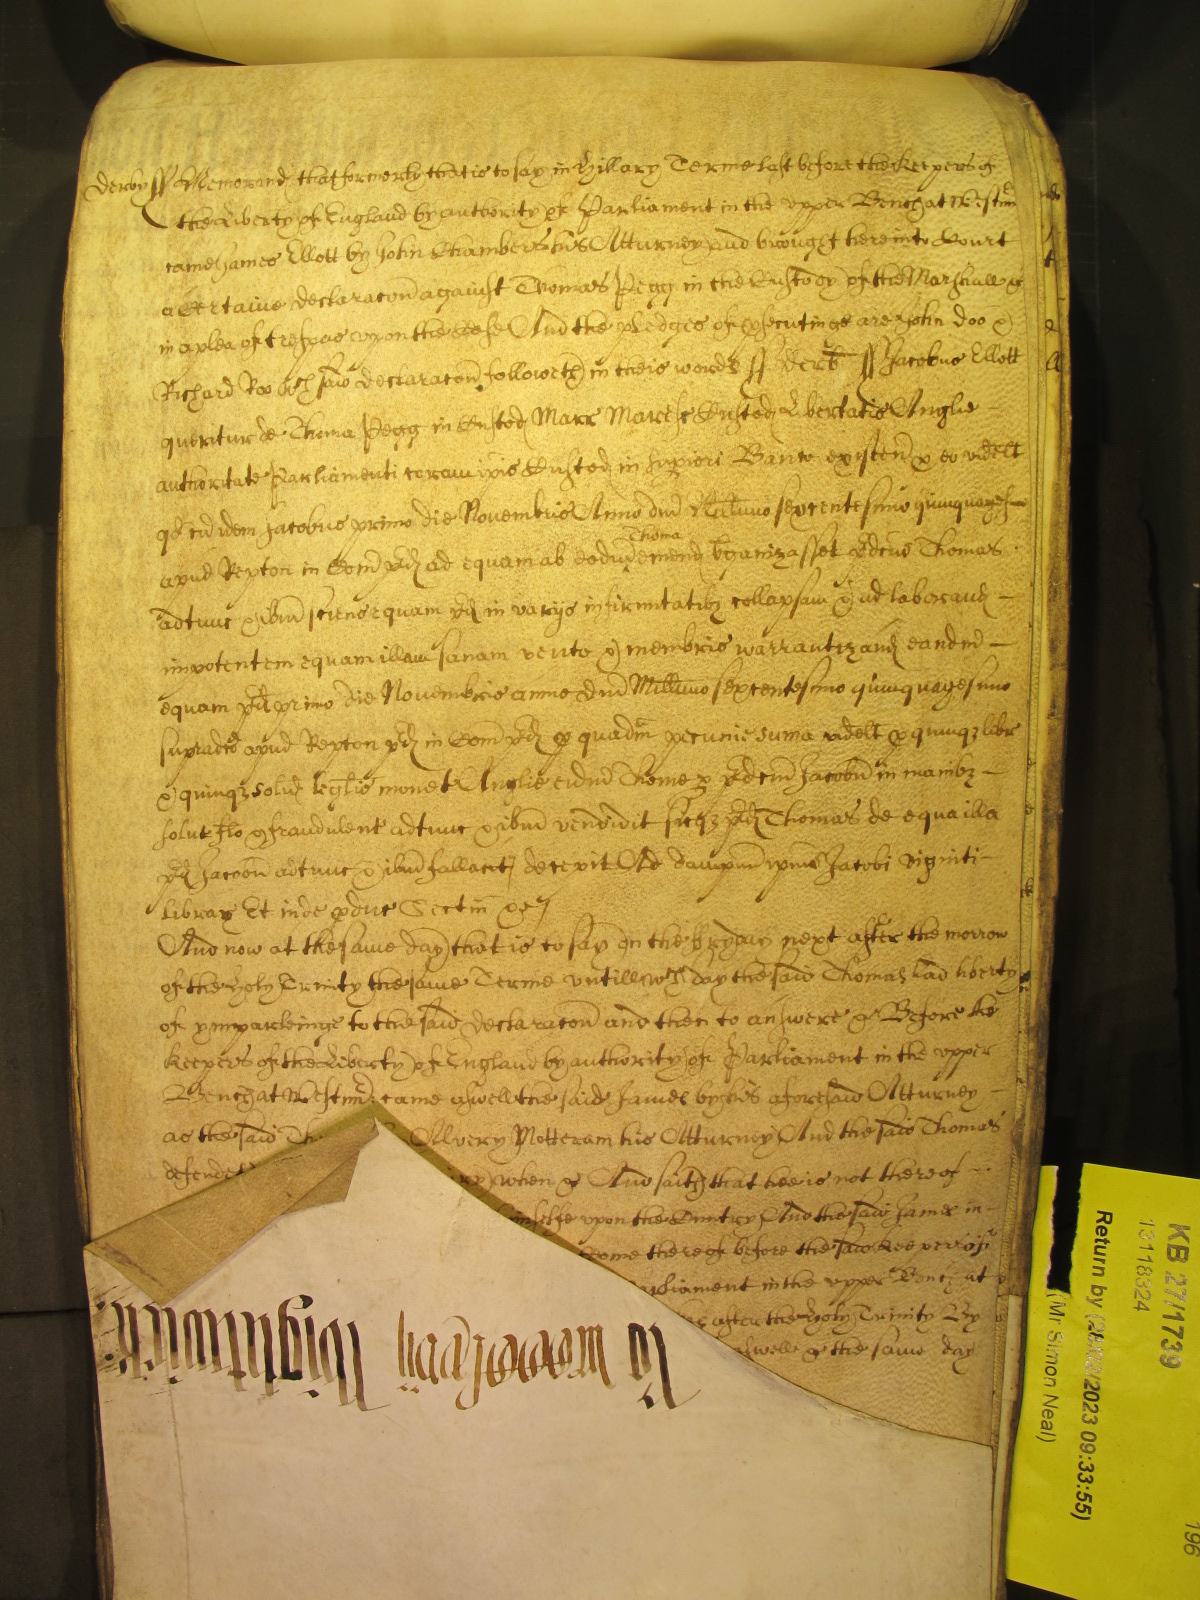 Derby ss Memorand that formerly that is to say in Hillary Terme last before the Keepers of
the Liberty of England by authority of Parliament in the upper Bench at Westm
came James Ellott by John Chambers his Atturney And brought here into Court
a certaine declaracon against Thomas Pegg in the Custody of the Marshall &
in a plea of trespas upon the case And the pledges of psecutinge are John Doo &
Richard Roo wch said declaracon followeth in theis words ss Derb ss Jacobus Ellott
queritur de Thoma Pegg in Custod Marr Maresc Custod Libertatis Anglie
authoritate Parliamenti coram ipis Custod in supiori Banco existen p eo videlt
qd cu idem Jacobus primo die Novembris Anno dni Millimo sexcentesimo quinquagesimo
apud Repton in Com pd ad equam ab eod Thoma emend bganizasset pdcus Thomas
adtunc & ibm sciens equam pd in varijs infirmitatibz collapsam & ad laborand
impotentem equam illam sanam vento & membris warrantizand eandm
equam pd primo die Novembris anno dni Millimo sexcentesimo quinquagesimo
supradco apud Repton pd in Com pd p quadm pecunie suma videlt p quinqz libr
& quinqz solid leglis monet Anglie eidm Thome p pdcm Jacobu in manibz
solut flo & fraudulent adtunc & ibm vendidit sicqz pd Thomas de equa illa
pd Jacobu adtunc & ibm fallacit decepit Ad dampnu ipius Jacobi viginti
librar Et inde pduc Sectm &c
And now at this same day that is to say on the Fryday next after the morrow
of the Holy Trinity the same Terme untill wch day the said Thomas had liberty
of ymparleinge to the said declaracon and then to answere & Before the
Keepers of the Liberty of England by authority of Parliament in the upper
Bench at Westm came aswell the said James by his aforesaid Atturney
as the said Th Alvery Motteram his Atturney And the said Thomas
defende when & And saith that hee is not thereof
himselfe upon the Cuntry And the said James in
come thereof before the said Keepers of
Parliament in the upper Bench at
after the Holy Trinity By
aswell & the same day
KB 27/1739
13118324
Return by (28/02/2023 09:33:55)
(Mr Simon Neal)
196